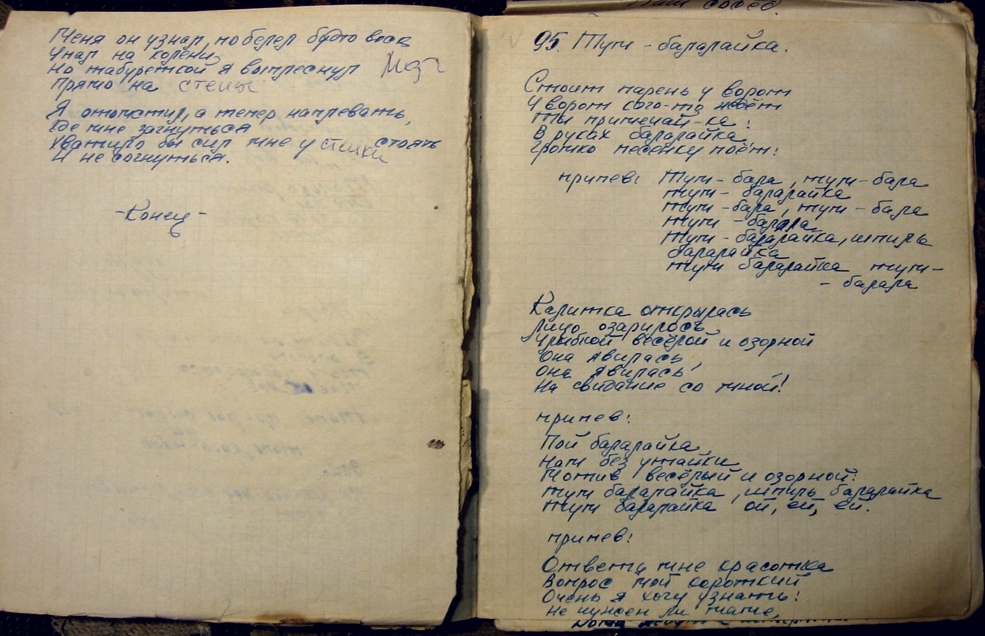 Меня он узнал, побелел будто воск
Упал на колени,
Но табуреткой я выплеснул мозг
Прямо на стены
Я отомстил, а теперь наплевать,
Где мне загнуться
Хватило бы сил мне у стенки стоять
И не согнуться.
-Конец-
95 Тум-балалайка.
Стоит парень у ворот
У ворот кого-то ждёт
Ты примечай-ка:
В руках балалайка
Громко песенку поёт:
припев: Тум-бала, тум-бала
тум-балалайка
тум-бала, тум-бала
тум-балала
Тум-балалайка, шпиль
балалайка
тум балалайка тум-
-балала
Калитка открылась
Лицо озарилось
Улыбкой весёлой и озорной
Она явилась,
Она явилась
На свидание со мной!
припев:
Пой балалайка
Нам без утайки
Мотив весёлый и озорной.
тум балалайка, шпиль балалайка
тум балалайка ой, ей, ей.
припев:
Ответь мне красотка
Вопрос мой короткий
Очень я хочу узнать:
Не нужен ли маме,